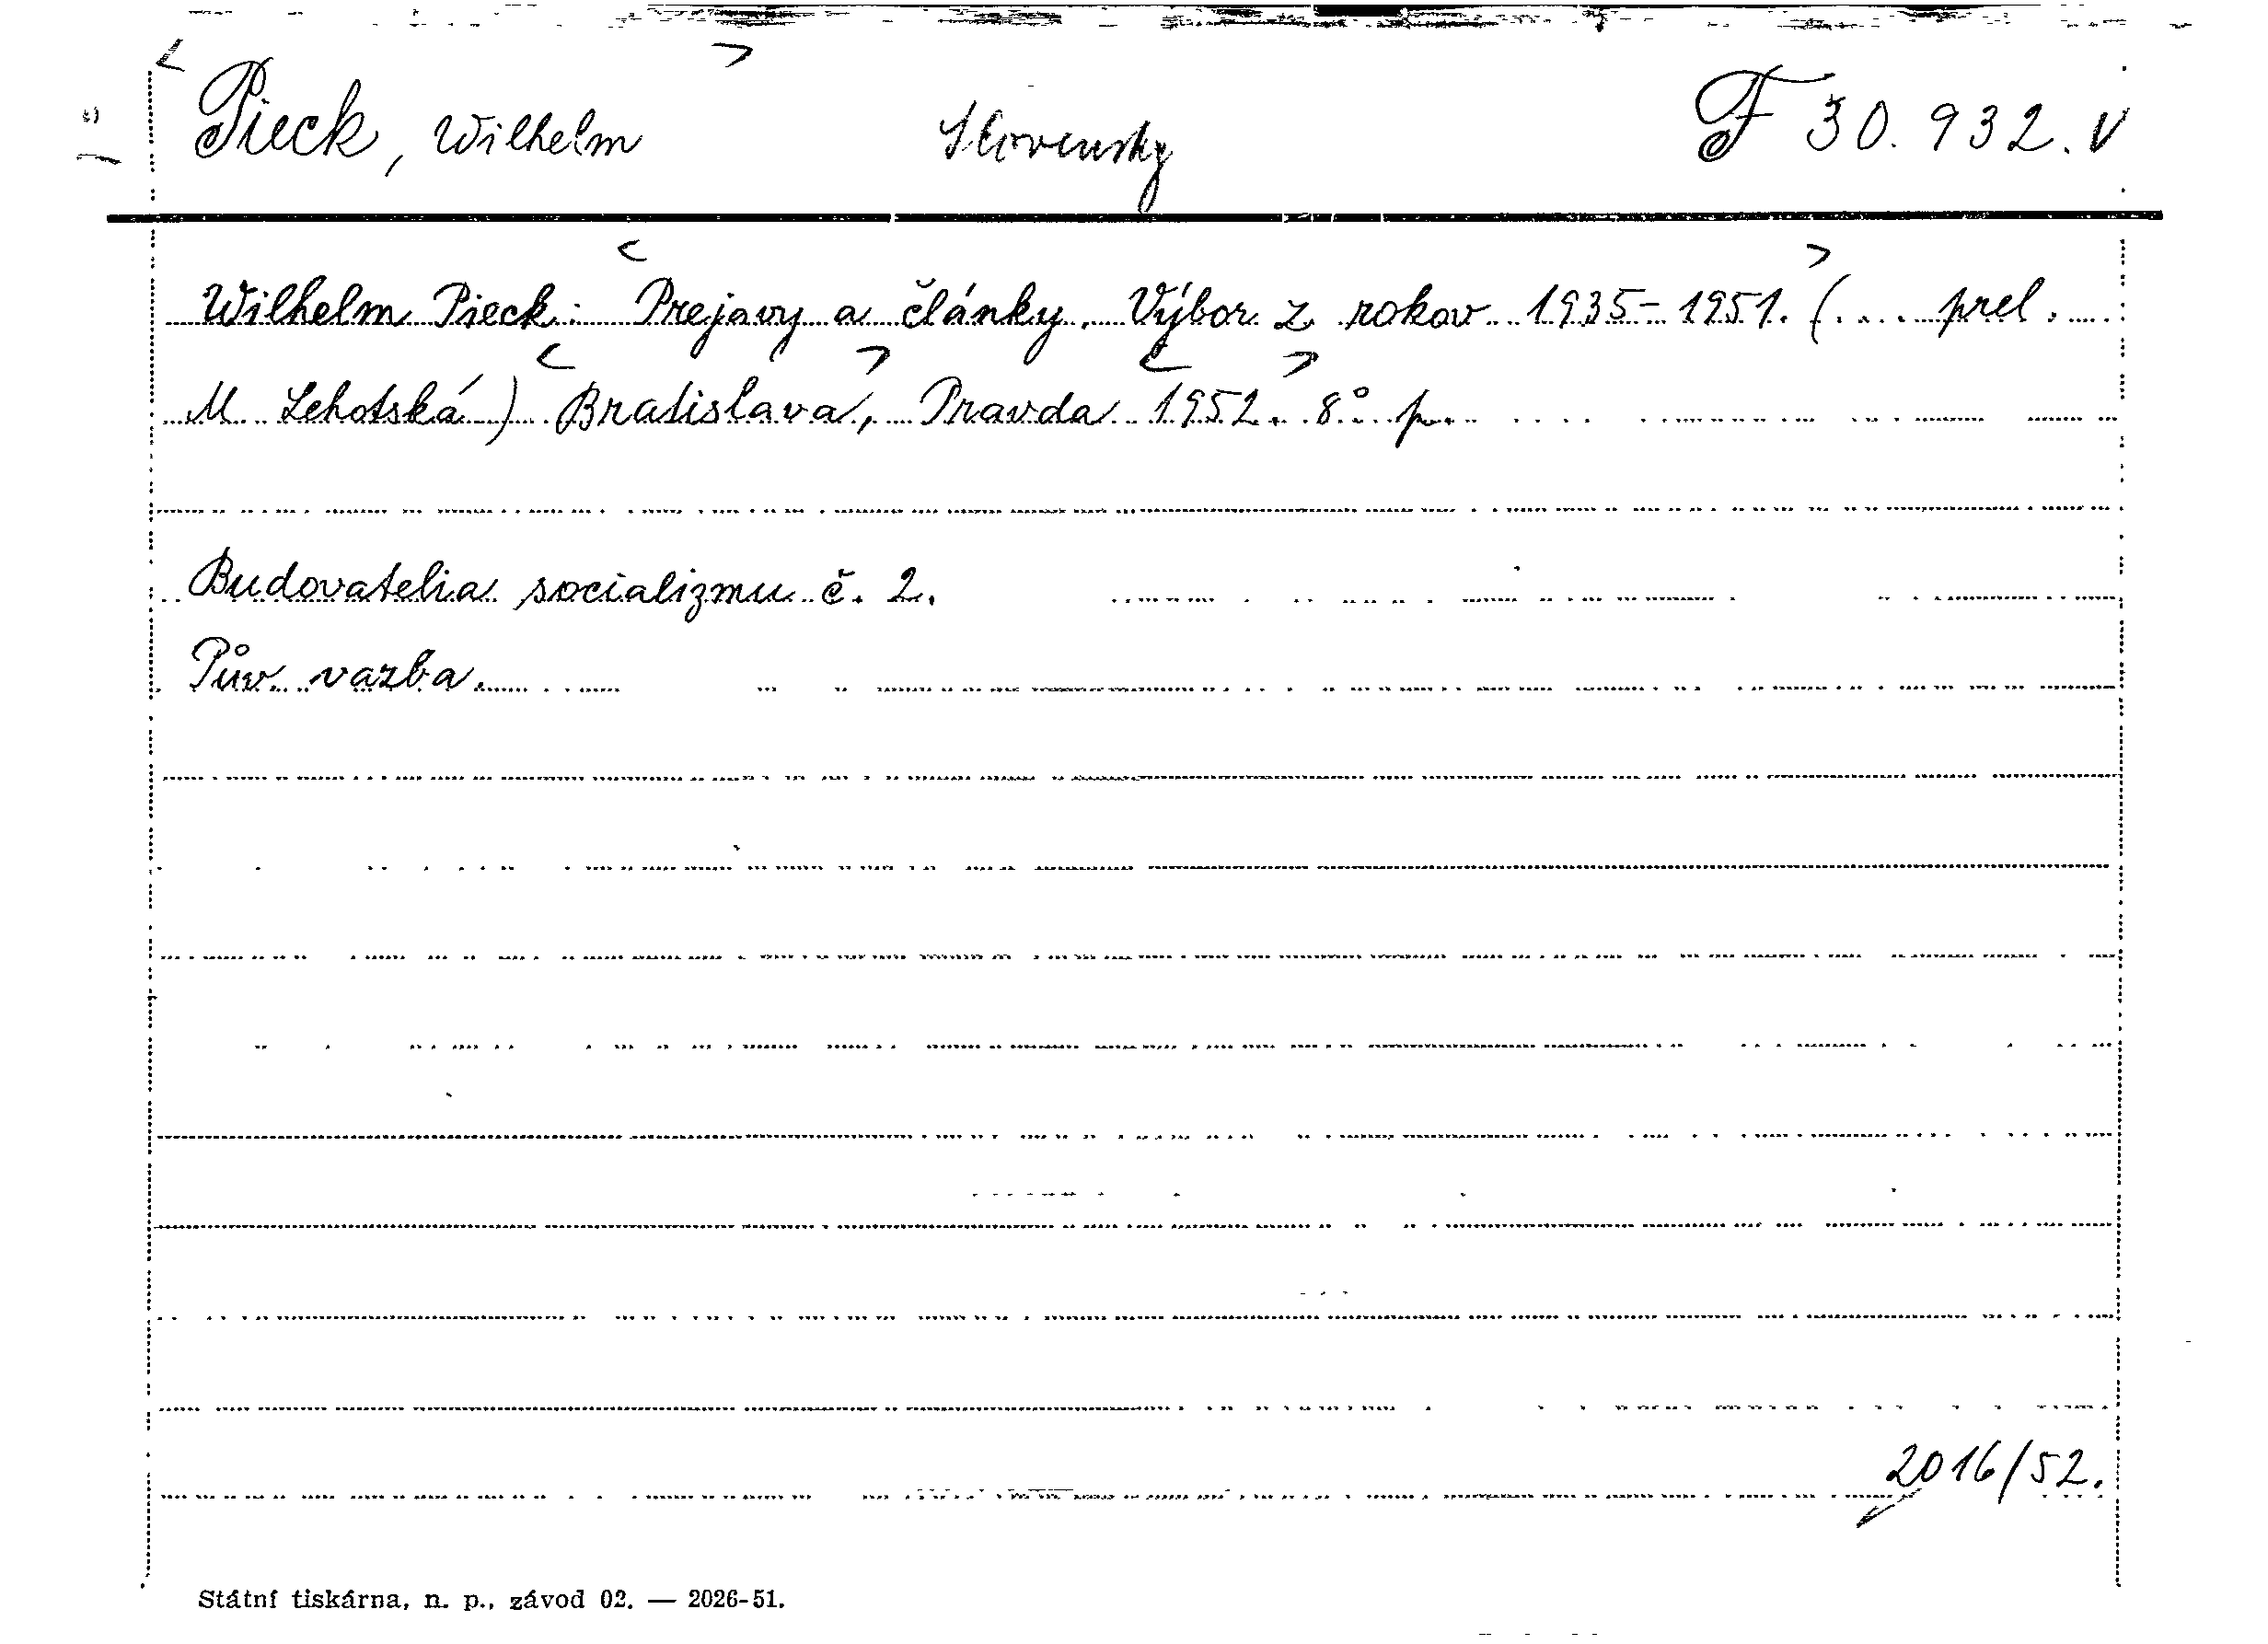 < Pieck, Wilhelm > Slovensky F 30.932.V
Wilhelm Pieck: <Prejavy a články. Výbor z rokov 1935-1951.> (.... prel.
M. Lehotská) <Bratislava>, Pravda <1952.> 8° p.
Budovatelia socializmu č. 2.
Pův. vazba.
2016/52.
Státní tiskárna, n. p., závod 02. — 2026-51.